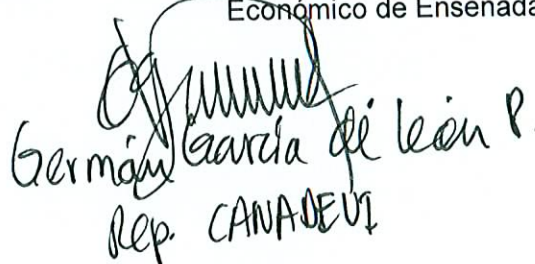 Económico de Ensenada
Germán García de León P.
Rep. CANADEVI